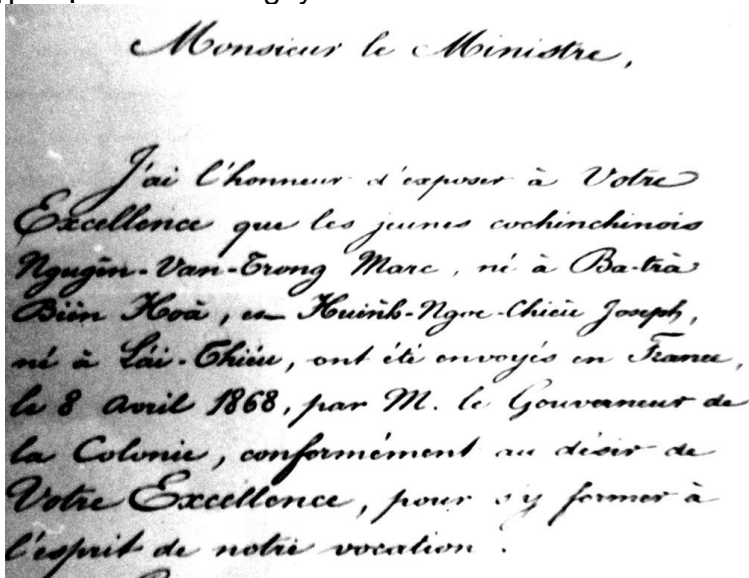 Monsieur le Ministre,
J'ai l'honneur d'exposer à Votre
Excellence que les jeunes cochinchinois
Nguyên-Van-Trong Marc, né à Ba-trà
Biên Hoà, et Huinh-Ngoc-Chiêu Joseph,
né à Lái-Thiêu, ont été envoyés en France,
le 8 Avril 1868, par M. le Gouverneur de
la Colonie, conformément au désir de
Votre Excellence, pour s'y former à
l'esprit de notre vocation.